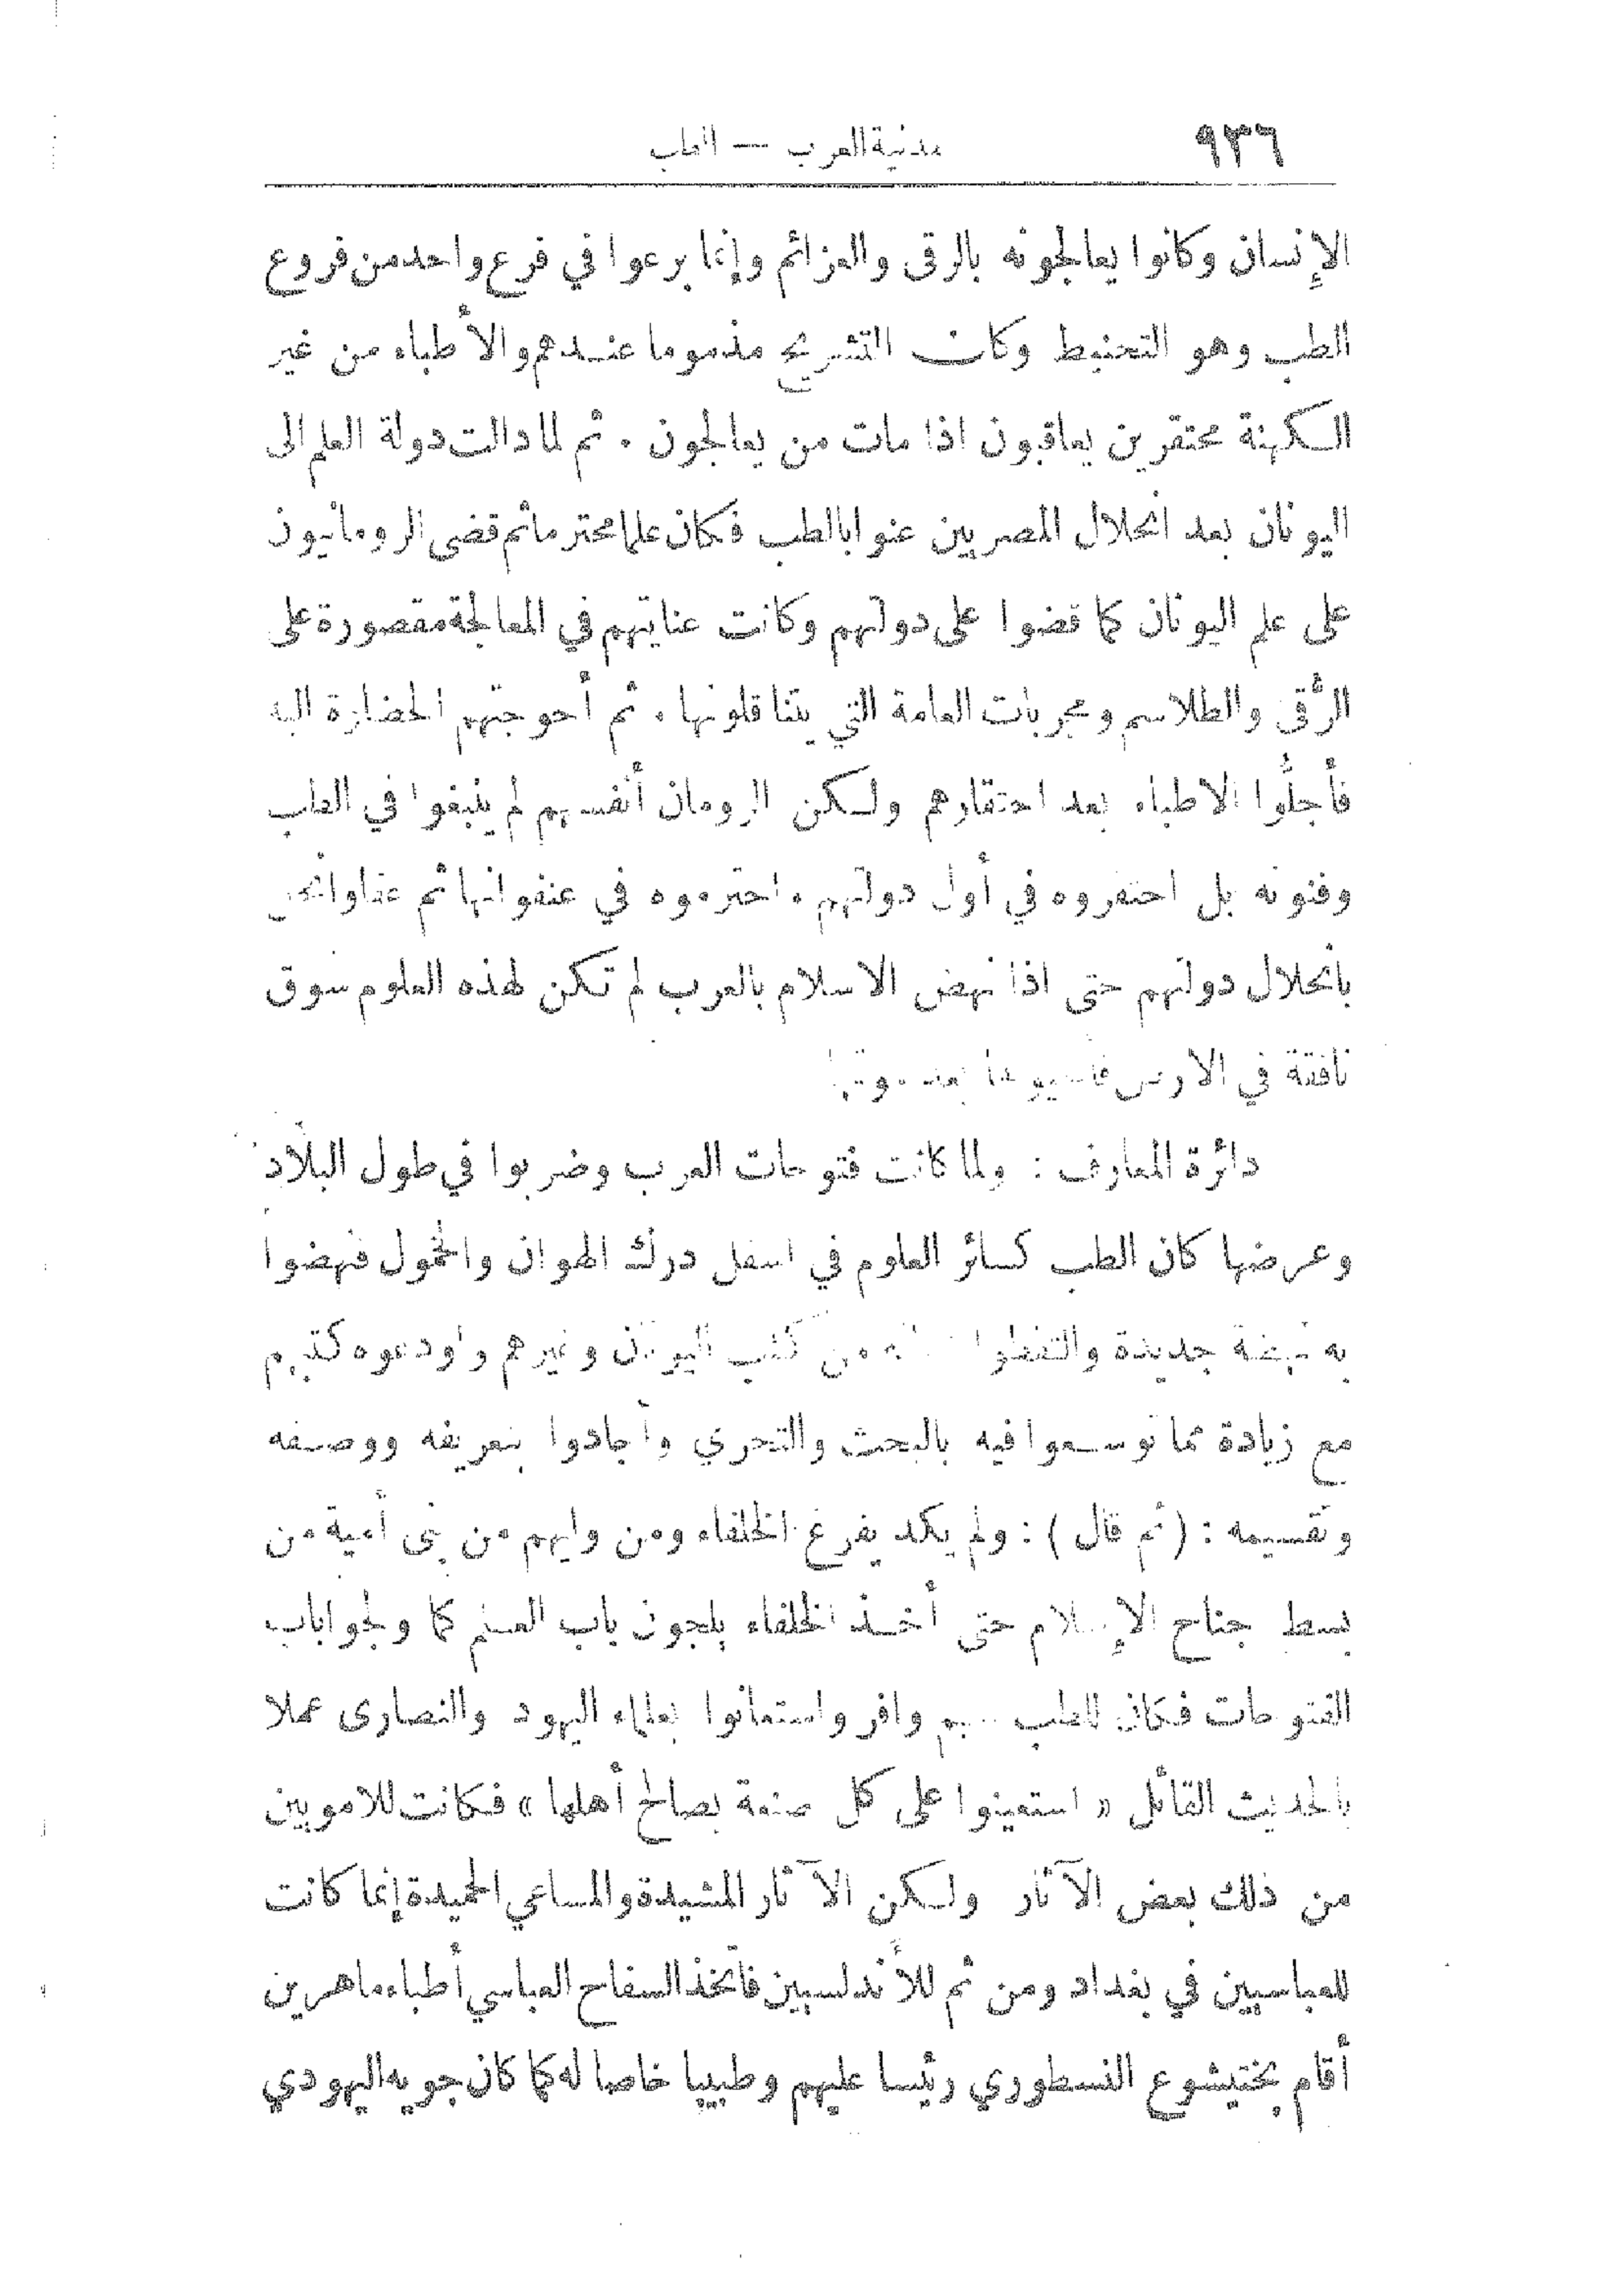 ٩٣٦
مدنية العرب — الطب
الإنسان وكانوا يعالجونه بالرقى والعزائم وإنما برعوا في فرع واحد من فروع
الطب وهو التحنيط وكان التشريح مذموما عندهم والأطباء من غير
الكهنة محتقرين يعاقبون اذا مات من يعالجون . ثم لما دالت دولة العلم الى
اليونان بعد انحلال المصريين عنوا بالطب فكان علما محترما ثم قضى الرومانيون
على علم اليونان كما قضوا على دولتهم وكانت عنايتهم في المعالجة مقصورة على
الرُّقى والطلاسم ومجربات العامة التي يتناقلونها . ثم أحوجتهم الحضارة اليه
فأجلُّوا الاطباء بعد احتقارهم ولكن الرومان أنفسهم لم ينبغوا في الطب
وفنونه بل احتقروه في أول دولتهم واحترموه في عنفوانها ثم
بانحلال دولتهم حتى اذا نهض الاسلام بالعرب لم تكن لهذه العلوم سوق
نافقة في الارض فأحيوها بعد موتها
دائرة المعارف : ولما كانت فتوحات العرب وضربوا في طول البلاد
وعرضها كان الطب كسائر العلوم في اسفل درك الهوان والخمول فنهضوا
به نهضة جديدة والتقطوا من كتب اليونان وغيرهم واودعوه كتبهم
مع زيادة مما توسعوا فيه بالبحث والتحري وأجادوا بتعريفه ووصفه
وتقسيمه : (ثم قال) : ولم يكد يفرغ الخلفاء ومن وليهم من بني أمية من
بسط جناح الإسلام حتى أخذ الخلفاء يلجون باب العلم كما ولجوا باب
الفتوحات فكان للطب سهم وافر واستعانوا بعلماء اليهود والنصارى عملا
بالحديث القائل « استعينوا على كل صنعة بصالح أهلها » فكانت للامويين
من ذلك بعض الآثار ولكن الآثار المشيدة والمساعي الحميدة إنما كانت
للعباسيين في بغداد ومن ثم للأندلسيين فاتخذ السفاح العباسي أطباء ماهرين
أقام بختيشوع النسطوري رئيسا عليهم وطبيبا خاصا له كما كان جويه اليهودي